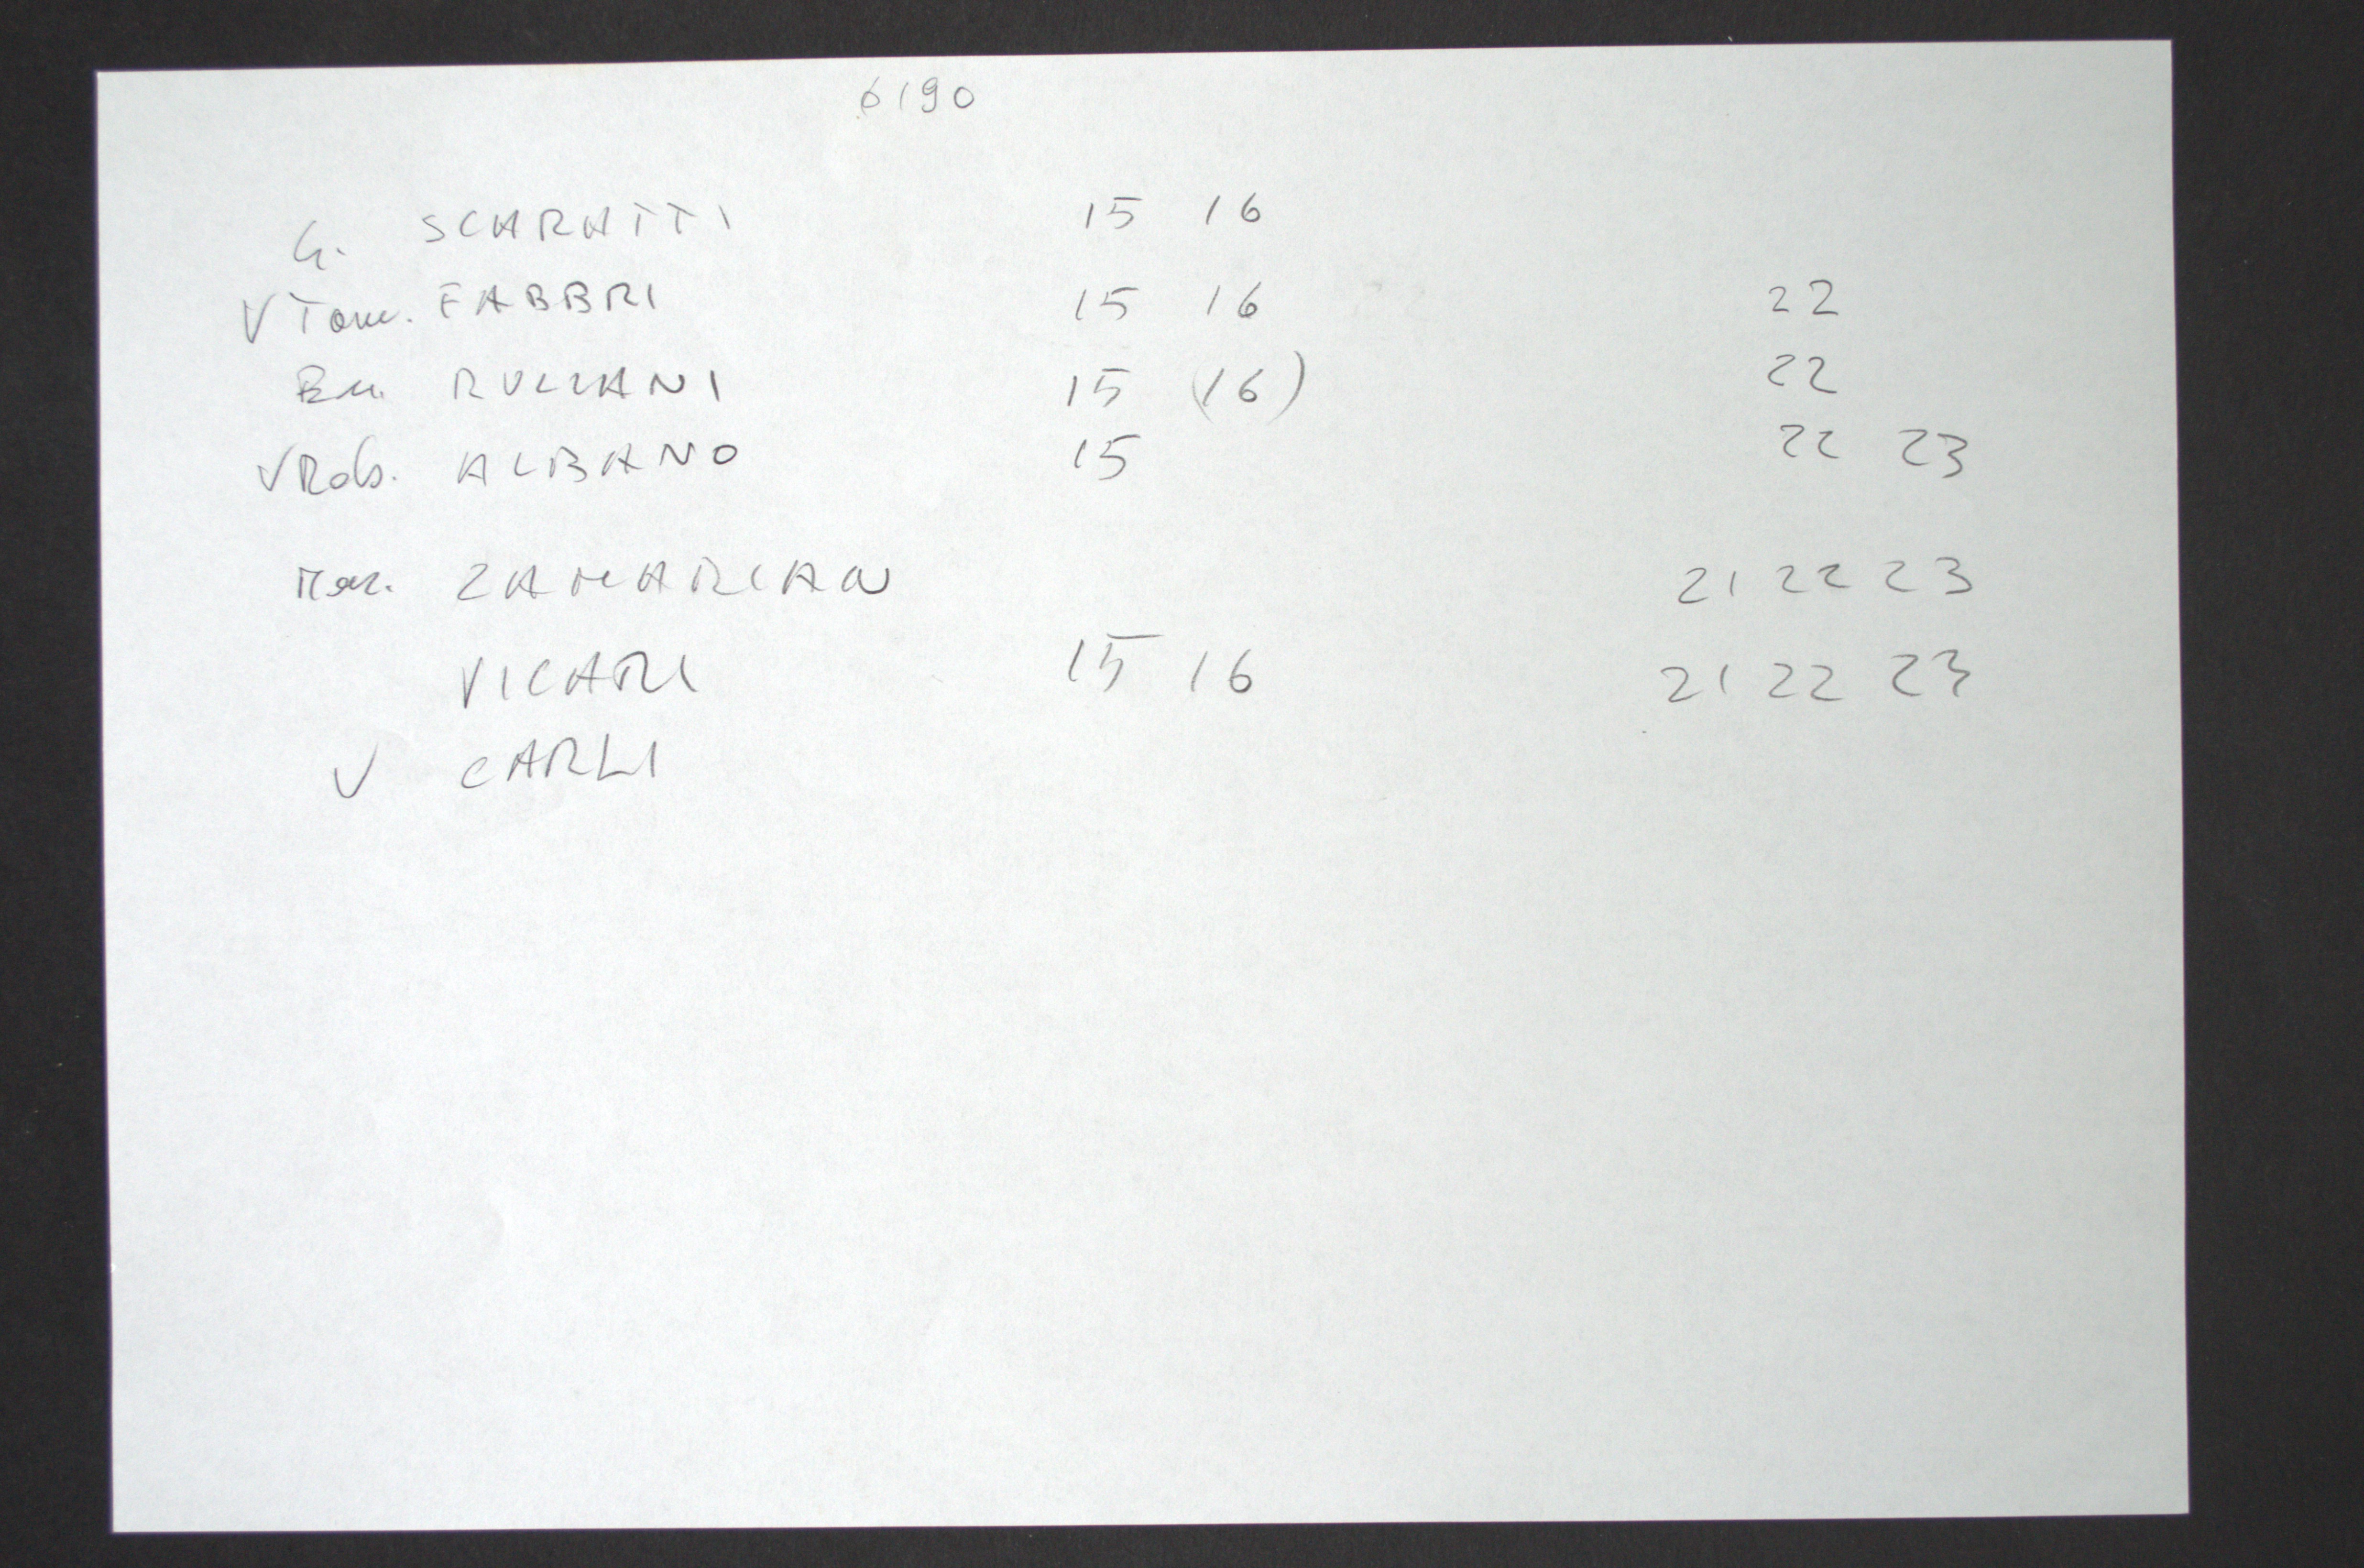 6190
G. SCARATTI 15 16
V Tom. FABBRI 15 16 22
Em. RULLANI 15 (16) 22
V Rob. ALBANO 15 22 23
Mar. ZAMARIAN 21 22 23
VICARI 15 16 21 22 23
V CARLI